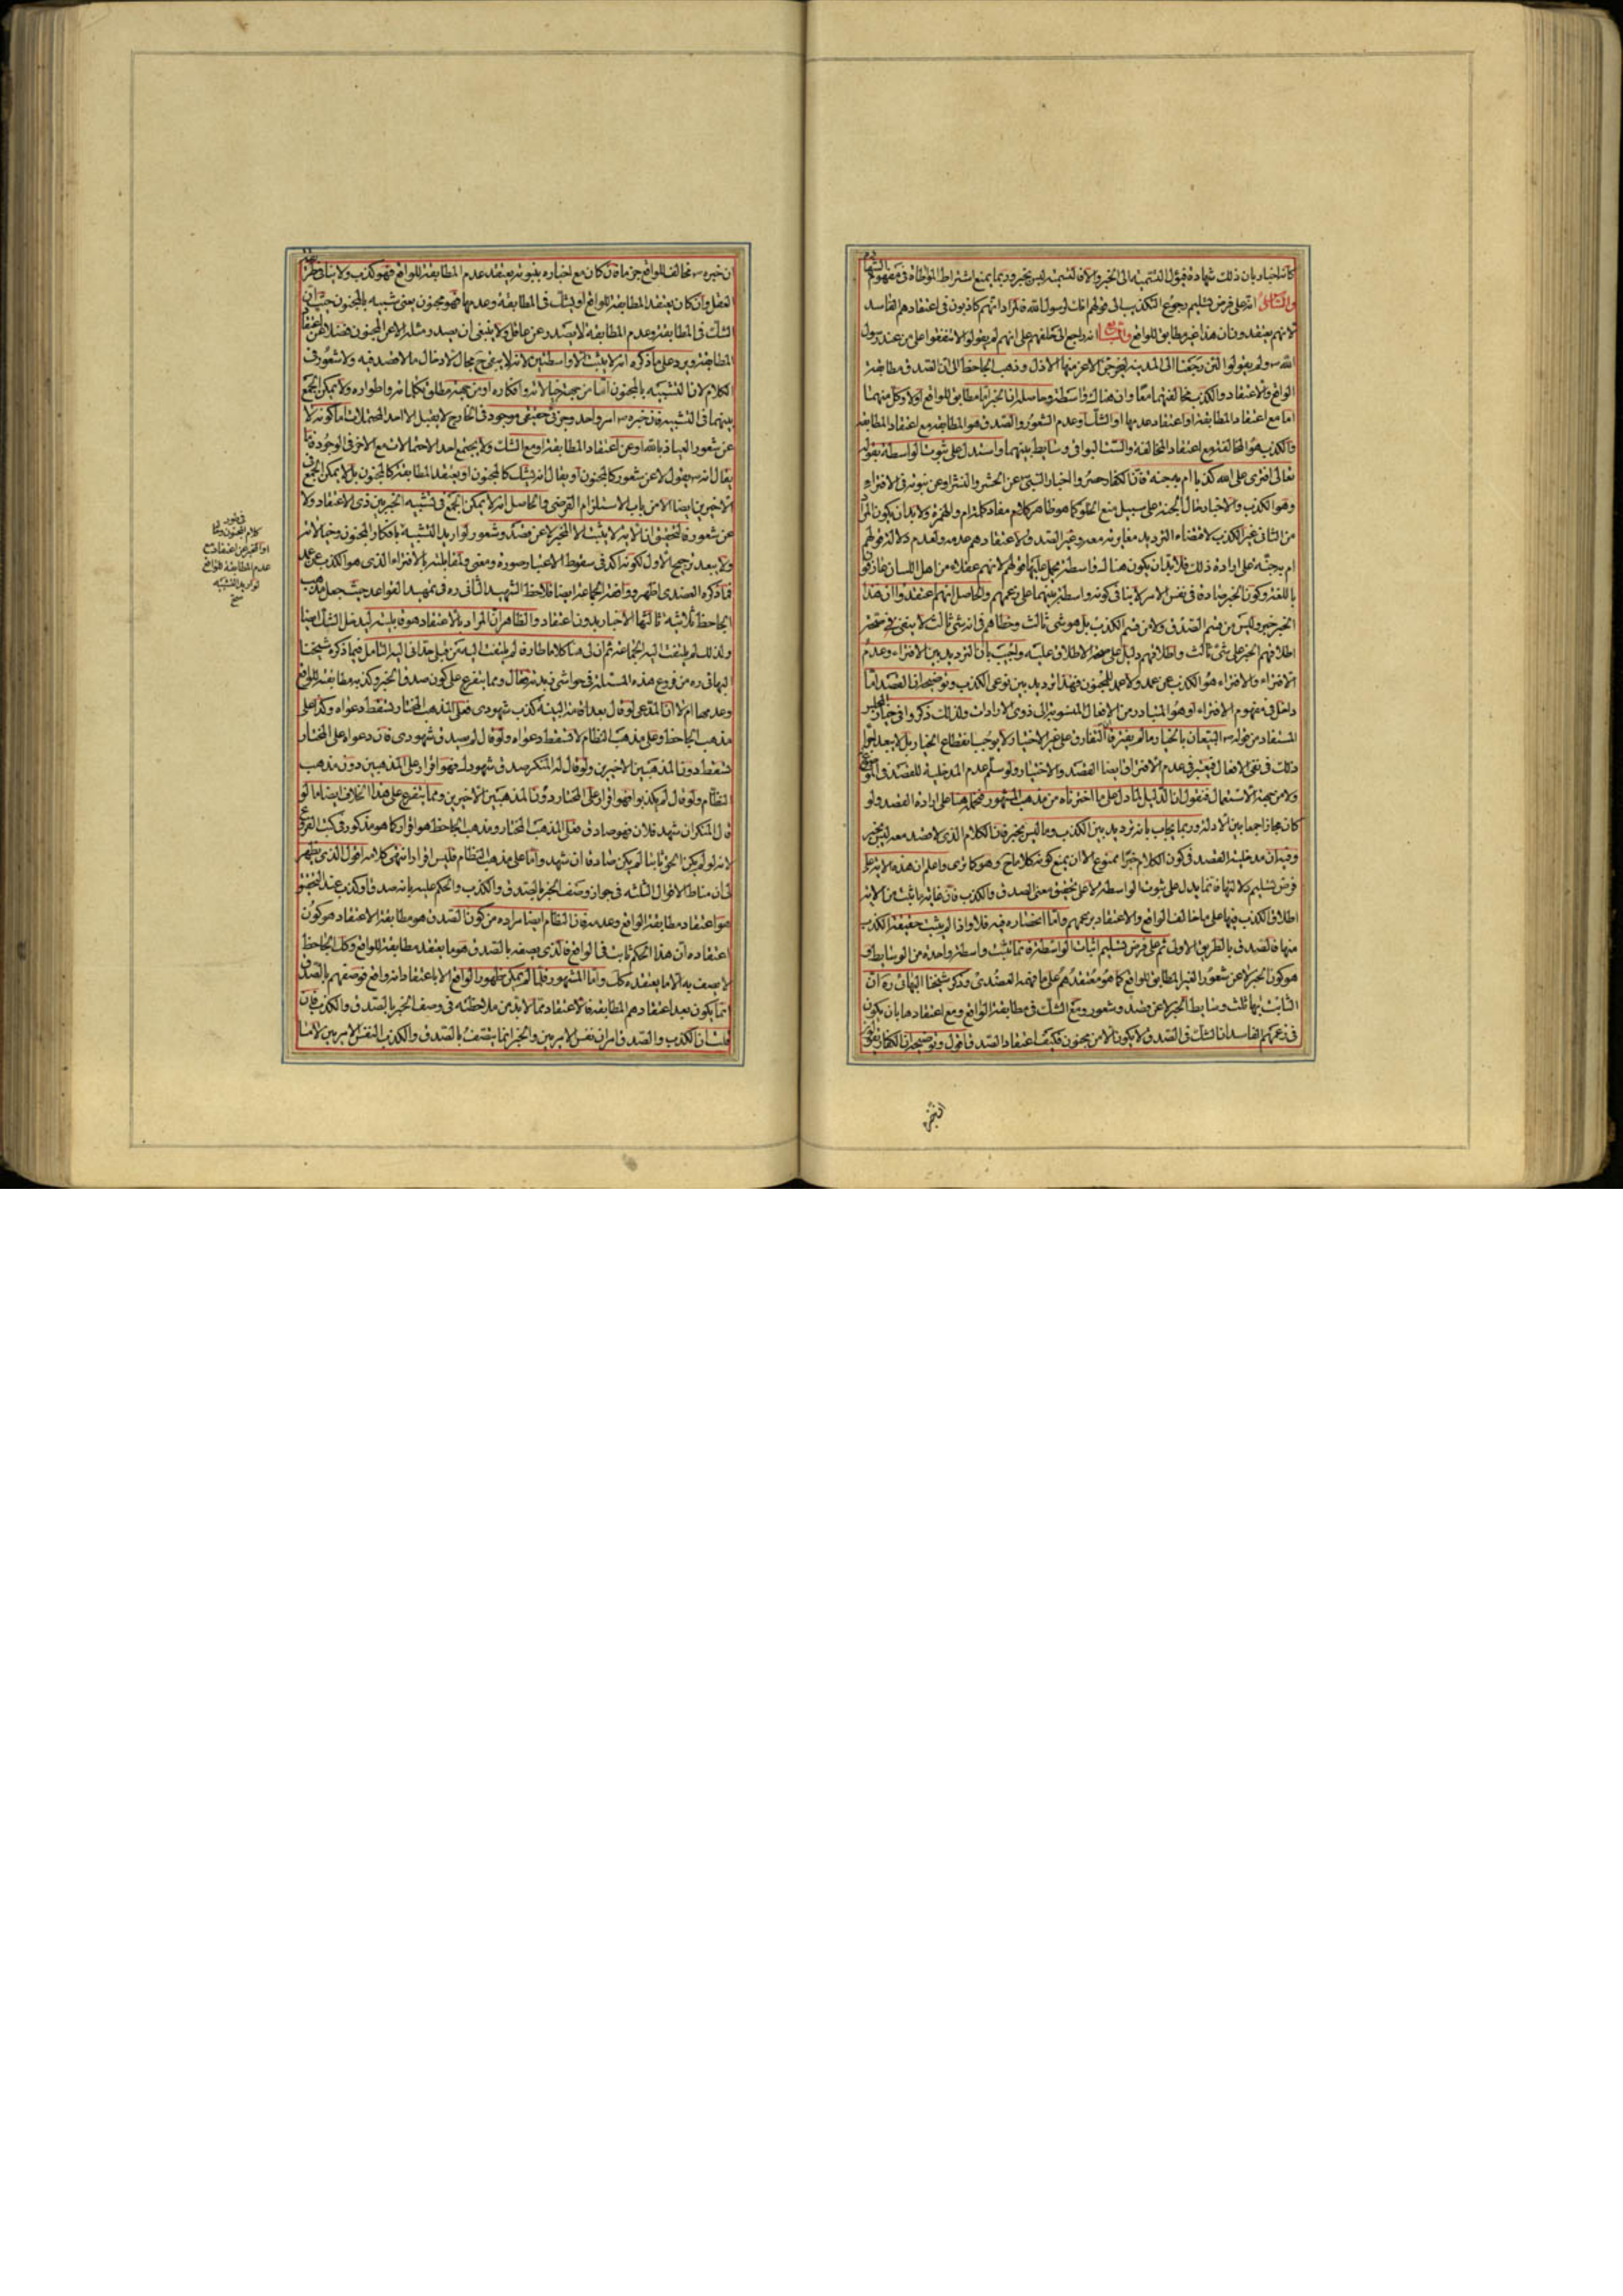 كانه اخبار بان ذلك شهادة فيؤل التسمية الى الخبر والا فالتسمية ليس بخبر وربما يمنع اشتراط المواطاة فى مفهوم الشهادة
والثالث انه على فرض تسليم رجوع التكذيب الى قولهم انك لرسول الله فالمراد انهم كاذبون فى اعتقادهم الفاسد
لانهم يعتقدون ان هذا غير مطابق للواقع والرابع انه راجع الى حلفهم على انهم لم يقولوا لا تنفقوا على من عند رسول
الله ولم يقولوا لئن رجعنا الى المدينة ليخرجن الاعز منها الاذل وذهب الجاحظ الى ان الصدق مطابقة
الواقع والاعتقاد والكذب مخالفتهما معا وان هناك واسطة وحاصله ان الخبر اما مطابق للواقع او لا وكل منهما
اما مع اعتقاد المطابقة او اعتقاد عدمها او الشك او عدم الشعور والصدق هو المطابقة مع اعتقاد المطابقة
والكذب هو المخالفة مع اعتقاد المخالفة والستة البواقى وسايط بينهما واستدل على ثبوت الواسطة بقوله
تعالى افترى على الله كذبا ام به جنة فان الكفار حصروا اخبار النبى عن الحشر والنشر او عن نبوته فى الافتراء
وهو الكذب والاخبار حال الجنة على سبيل منع الخلو كما هو ظاهر كلامهم مفاد كلمة ام والهمزة ولا بد ان يكون المراد
من الثانى غير الكذب لاقتضاء الترديد مغايرته معه وغير الصدق لاعتقادهم عدمه ولعدم دلالة قولهم
ام به جنة على ارادة ذلك فلا بد ان يكون هناك واسطة يحمل عليها قولهم لانهم عقلاء من اهل اللسان عارفون
باللغة وكون الخبر صادقا فى نفس الامر لا ينافى كونه واسطة بينهما على زعمهم والحاصل انهم اعتقدوا ان هذا
الخبر خبر وليس من قسم الصدق ولا من قسم الكذب بل هو شىء ثالث وخطاهم فى انه شىء ثالث لا ينفى صحة
اطلاقهم الخبر على شىء ثالث واطلاقهم دليل على صحة الاطلاق عليه واجيب بان الترديد بين الافتراء وعدم
الافتراء والافتراء هو الكذب عن عمد ولا عمد للمجنون فهذا ترديد بين نوعى الكذب وتوضيحه ان القصد اما
داخل فى مفهوم الافتراء او هو المتبادر من الافعال المنسوبة الى ذوى الارادات ولذلك ذكروا فى خيار المجلس
المستفاد من قوله البيعان بالخيار ما لم يفترقا ان التفارق على غير الاختيار لا يوجب انقطاع الخيار بل لا يبعد
ذلك فى نفى الافعال فيعتبر فى عدم الافتراق ايضا القصد والاختيار ولو سلم عدم المدخلية للقصد فى الوضع
ولا من جهة الاستعمال فنقول ان الدليل لما دل على ما اخترناه من مذهب المشهور فيحمل هنا على ارادة القصد ولو
كان مجازا جمعا بين الادلة وربما يجاب بانه ترديد بين الكذب وما ليس بخبر فان الكلام الذى لا قصد معه ليس بخبر
وفيه ان مدخلية القصد فى كون الكلام خبرا ممنوع الا ان يمنع كونه كلاما ح وهو كما ترى واعلم ان هذه الاية على
فرض تسليم دلالتها فانما يدل على ثبوت الواسطة لا على تحقيق معنى الصدق والكذب فان غاية ما يثبت من الاية
اطلاق الكذب فيها على ما خالف الواقع والاعتقاد بزعمهم واما انحصاره فيه فلا واذا لم يثبت حقيقة الكذب
منها فالصدق بالطريق الاولى ثم على فرض تسليم اثبات الواسطة فانما يثبت واسطة واحدة من الوسايط و
هو كون الخبر لا عن شعور الغير المطابق للواقع كما هو معتقدهم على ما فهمه العضدى وذكر شيخنا البهائى ره ان
الثابت بها ثلث وسايط الخبر لا عن قصد وشعور ومع الشك فى مطابقة الواقع ومع اعتقادها بان يكون
فى زعمهم الفاسد ان الشك فى الصدق لا يكون الا من مجنون فكيف اعتقاد الصدق اقول وتوضيحه ان الكفار
ان خبره مخالف للواقع جزما فان كان مع اخباره بنبوته يعتقد عدم المطابقة للواقع فهو كذب ولا ينافى
العقل وان كان يعتقد المطابقة للواقع او يشك فى المطابقة وعدمها فهو مجنون يعنى شبيه بالمجنون حيث ان
الشك فى المطابقة وعدم المطابقة لا يصدر عن عاقل ولا ينبغى ان يصدر مثله الا عن المجنون فضلا عن اعتقاد
المطابقة ويرد على ما ذكره انه لا يثبت الا واسطتين لانه لا يبقى ح مجال لادخال ما لا قصد فيه ولا شعور فى
الكلام لان التشبيه بالمجنون اما من جهة خيالاته وافكاره او من جهة مطلق تكلماته واطواره ولا يمكن الجمع
بينهما فى التشبيه فان خبره امر واحد وجزئى حقيقى موجود فى الخارج لا يقبل الا احد المحتملات اما كونه لا
عن شعور العياذ بالله او عن اعتقاد المطابقة او مع الشك ولا يجتمع احد الاحتمالات مع الاخر فى الوجود فاما
يقال انه يقول لا عن شعور كالمجنون او يقال انه يشك كالمجنون او يعتقد المطابقة كالمجنون بل لا يمكن الجمع فى
الاخيرين ايضا الا من باب الاستلزام الفرضى والحاصل انه لا يمكن الجمع فى تشبيه الخبر بين ذى الاعتقاد ولا
عن شعور فالتحقيق ان الاية لا يثبت الا الخبر لا عن قصد وشعور لو اريد التشبيه بافكار المجنون وخيالاته
ولا يبعد ترجيح الاول لكونه اكد فى سقوط الاعتبار صورة ومعنى ولمقابلته بالافتراء الذى هو الكذب عن عمد
فما ذكره العضدى اظهر ووافقه الجماعة ايضا فلاحظ الشهيد الثانى ره فى تمهيد القواعد حيث جعل مذهب
الجاحظ ثلاثية ثالثها الاخبار بدون اعتقاد والظاهر ان المراد بالاعتقاد هو قابليته ليدخل الشك ايضا
ولذلك لم يلتفت اليه الجماعة ثم ان لى هنا كلاما طارفا لم يلتفت اليه من قبلى حدانى اليه التامل فيما ذكره شيخنا
البهائى ره من فروع هذه المسئلة فى حواشى زبدته قال ومما يتفرع على كون صدق الخبر وكذبه مطابقته للواقع
وعدمها ام لا ان المدعى لو قال بعد اقامة البينة كذب شهودى فعلى المذهب المختار تسقط دعواه وكذا على
مذهب الجاحظ وعلى مذهب النظام لا تسقط دعواه ولو قال لم يصدق شهودى فان دعواه على المختار
تسقط دون المذهبين الاخيرين ولو قال له المنكر صدق شهودك فهو اقرار على المذهبين دون مذهب
النظام ولو قال لم يكذبوا فهو اقرار على المختار دون المذهبين الاخيرين ومما يتفرع على هذا الخلاف ايضا ما لو
قال المنكر ان شهد فلان فهو صادق فعلى المذهب المختار ومذهب الجاحظ هو اقرار كما هو مذكور فى كتب الفروع
لانه لو لم يكن الحق ثابتا لم يكن صادقا ان شهد واما على مذهب النظام فليس اقرارا انتهى كلامه اقول الذى يظهر
لى ان مناط الاقوال الثلثة فى جواز وصف الخبر بالصدق والكذب والحكم عليه بانه صدق او كذب عند التحقيق
هو اعتقاد مطابقة الواقع وعدمه فان النظام ايضا مراده من كون الصدق هو مطابقة الاعتقاد هو كون
اعتقاده ان هذا الحكم ثابت فى الواقع فالذى يصفه بالصدق هو ما يعتقد مطابقته للواقع وكك الجاحظ
لا يصف به الا ما يعتقده كك واما المشهور فلما لم يمكن ظهور الواقع الا باعتقاد انه واقع فوصفهم بالصدق
انما يكون بعد اعتقادهم المطابقة فالاعتقاد مما لا بد من ملاحظته فى وصف الخبر بالصدق والكذب فان
قلت ان الكذب والصدق امران نفس الامريين والخبر انما يتصف بالصدق والكذب النفس الامريين لا ما
كلام المجنون
عدم المطابقة للواقع
لو اريد التشبيه